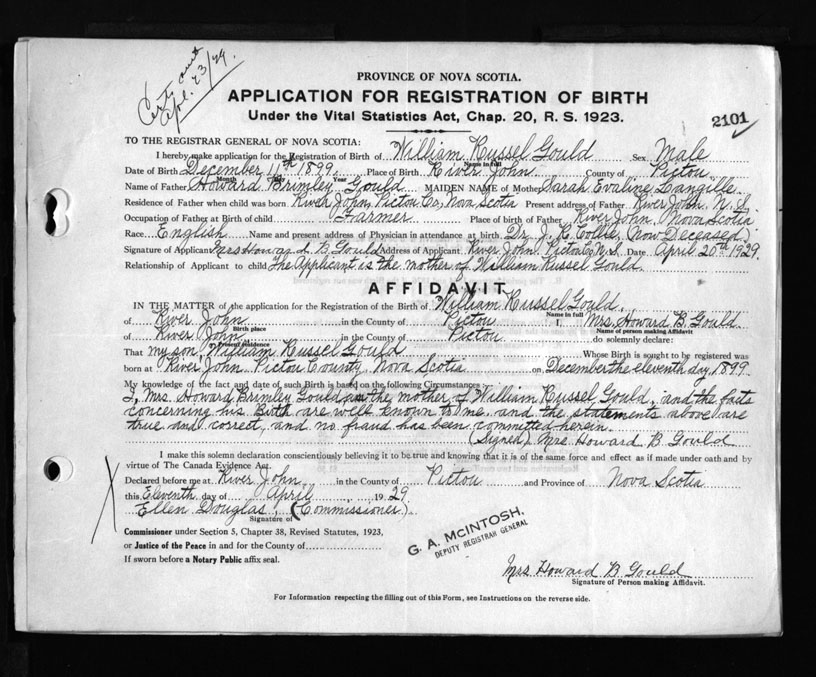 Certy sent
Apl. 23/29.
PROVINCE OF NOVA SCOTIA.
APPLICATION FOR REGISTRATION OF BIRTH
Under the Vital Statistics Act, Chap. 20, R. S. 1923.
2101
TO THE REGISTRAR GENERAL OF NOVA SCOTIA:
I hereby make application for the Registration of Birth of William Russel Gould Sex Male
Name in full
Date of Birth December 11th 1899. Place of Birth River John. County of Pictou
Month Day Year
Name of Father Howard Brimley Gould MAIDEN NAME of Mother Sarah Evaline Langille
Residence of Father when child was born River John, Pictou Co, Nova Scotia Present address of Father River John, N. S
Occupation of Father at Birth of child Farmer Place of birth of Father River John, Nova Scotia
Race English Name and present address of Physician in attendance at birth Dr. J. K. (Now Deceased)
Signature of Applicant Mrs Howard B Gould Address of Applicant River John Pictou Co, N.S. Date April 20th 1929.
Relationship of Applicant to child The Applicant is the mother of William Russel Gould
AFFIDAVIT
IN THE MATTER of the application for the Registration of the Birth of William Russel Gould.
Name in full
of River John in the County of Pictou I, Mrs. Howard B. Gould
Birth place Name of person making Affidavit
of River John in the County of Pictou do solemnly declare:
Present residence
That my son, William Russel Gould Whose Birth is sought to be registered was
born at River John Pictou County, Nova Scotia on December the eleventh day, 1899.
My knowledge of the fact and date of such Birth is based on the following Circumstances:
I, Mrs. Howard Brimley Gould am the mother of William Russel Gould, and the facts
concerning his Birth are well known to me, and the statements above are
true and correct, and no fraud has been committed herein.
(Signed) Mrs. Howard B Gould
I make this solemn declaration conscientiously believing it to be true and knowing that it is of the same force and effect as if made under oath and by
virtue of The Canada Evidence Act.
Declared before me at River John in the County of Pictou and Province of Nova Scotia
this Eleventh day of April 1929
Ellen Douglas, (Commissioner)
Signature of
Commissioner under Section 5, Chapter 38, Revised Statutes, 1923,
or Justice of the Peace in and for the County of
If sworn before a Notary Public affix seal.
G. A. MCINTOSH,
DEPUTY REGISTRAR GENERAL
Mrs Howard B Gould
Signature of Person making Affidavit.
For Information respecting the filling out of this Form, see Instructions on the reverse side.